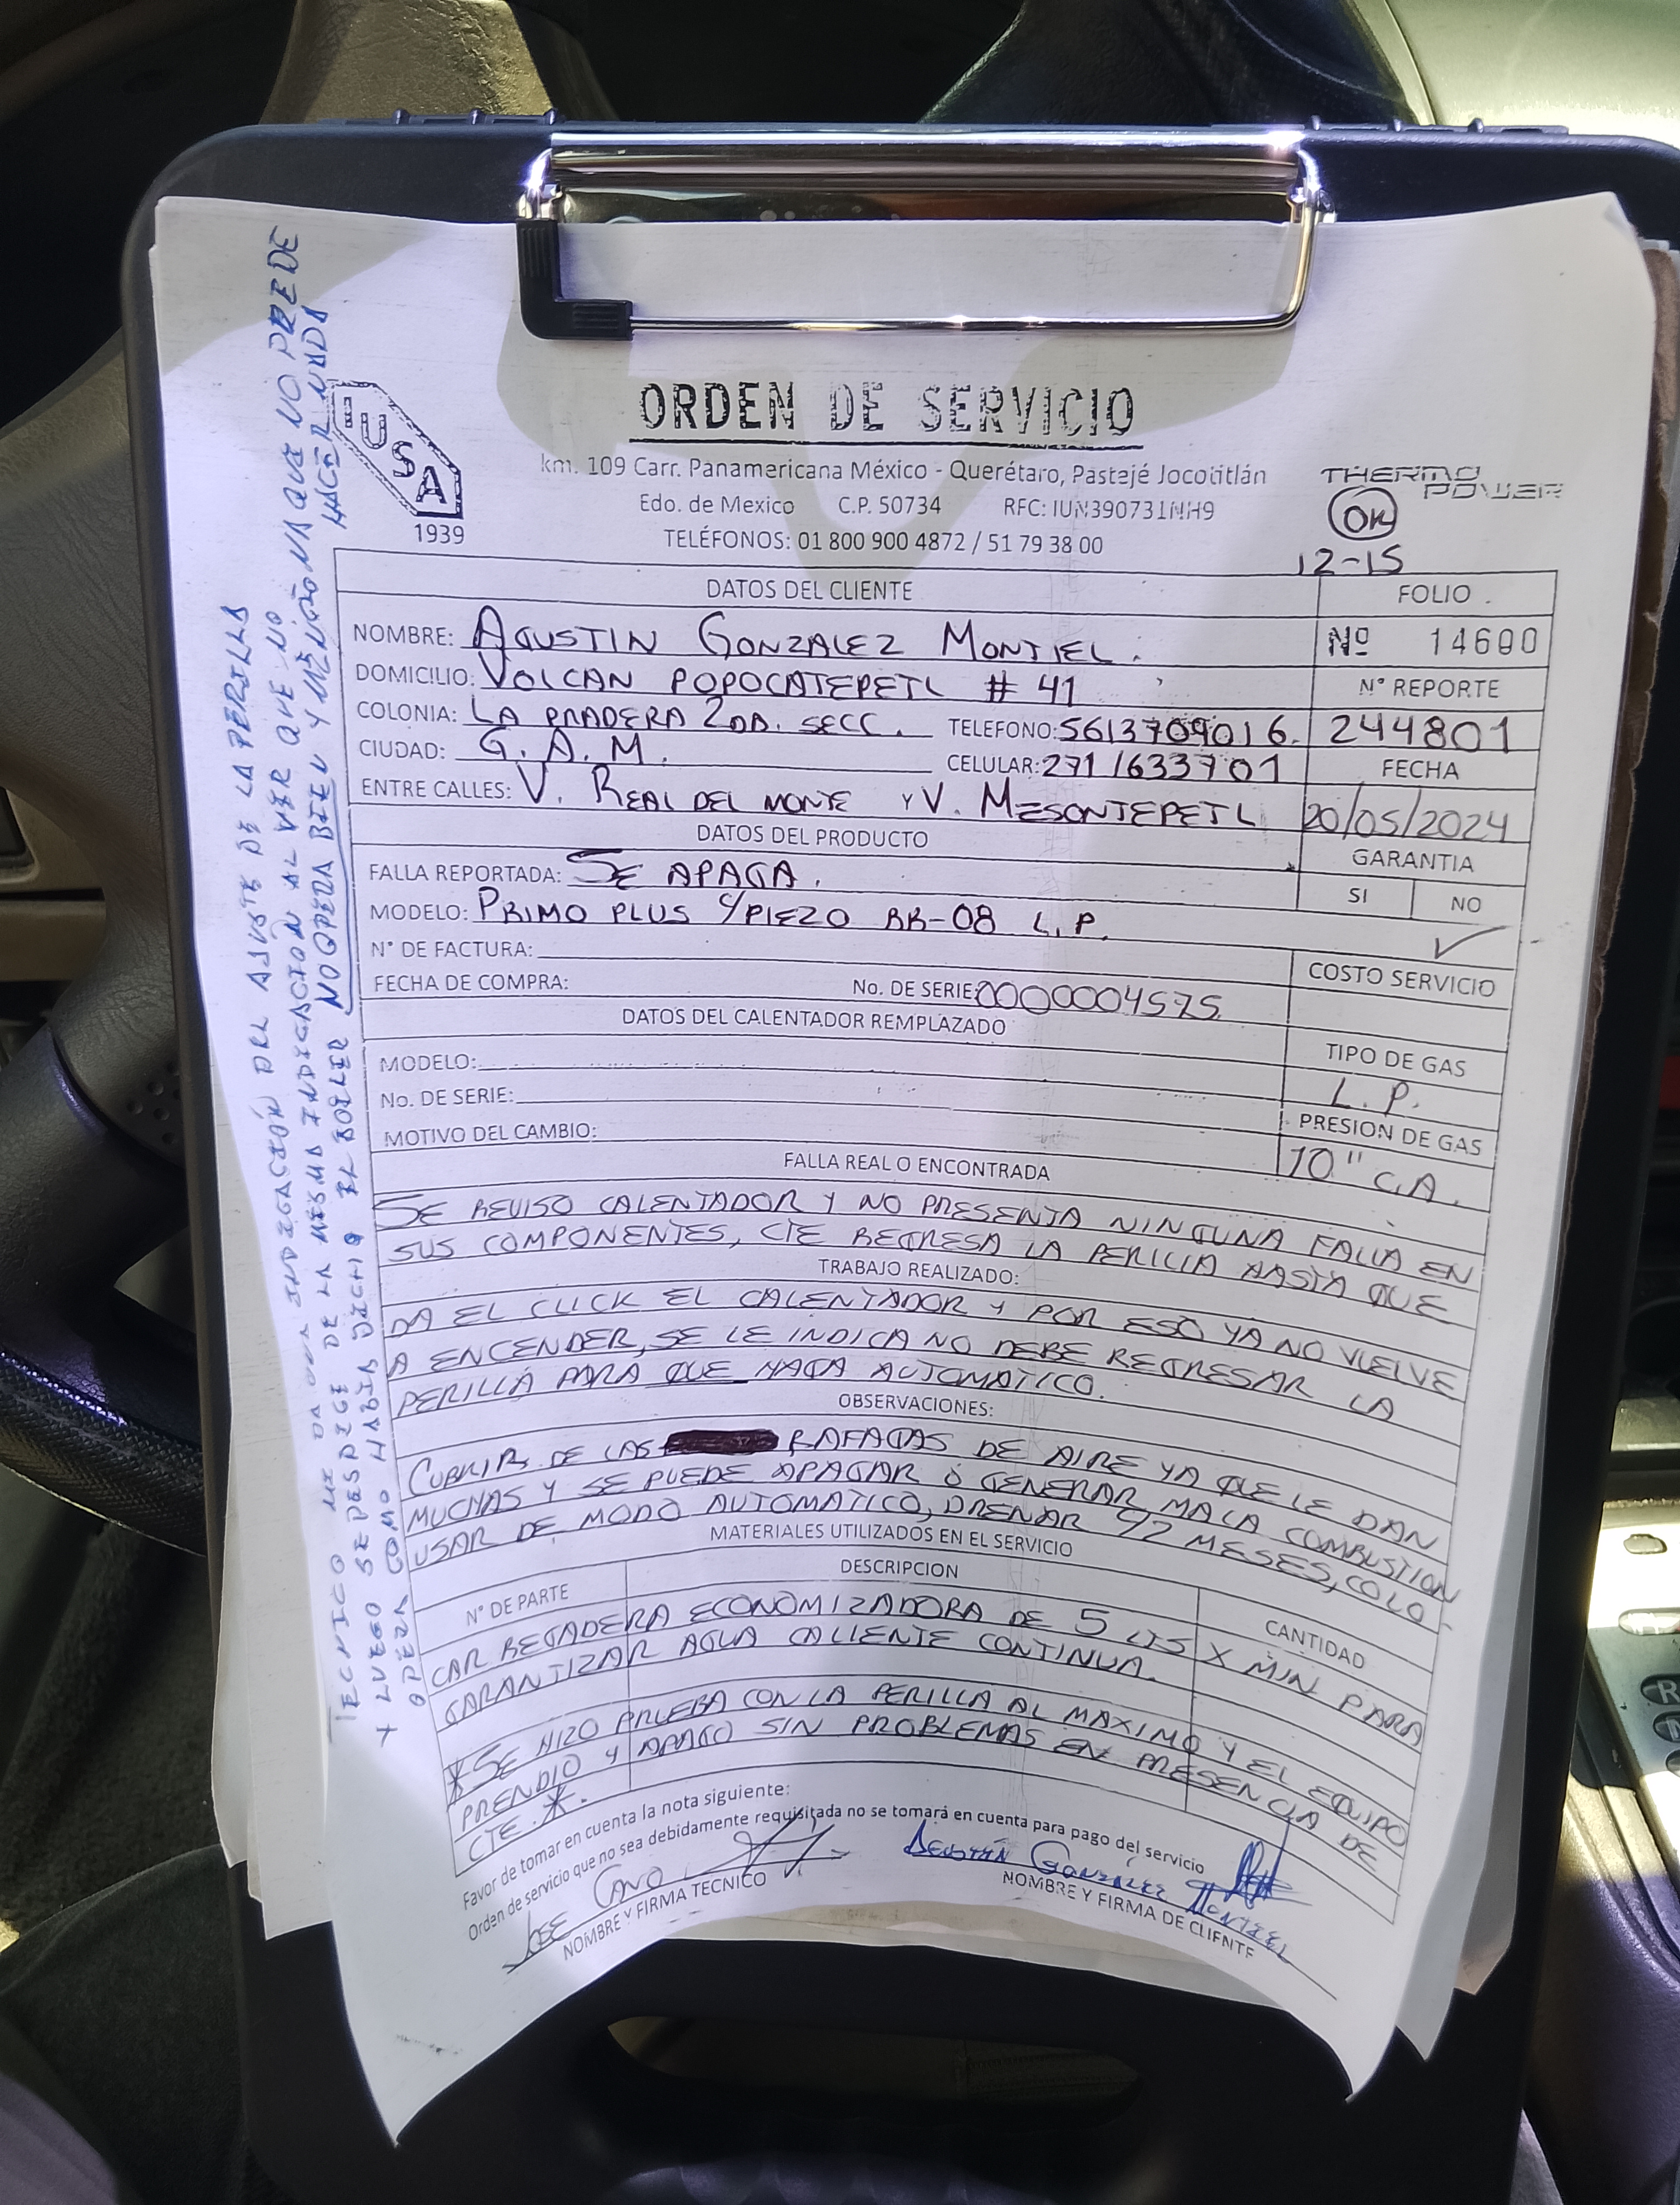 ORDEN DE SERVICIO
IUSA
1939
km. 109 Carr. Panamericana México - Querétaro, Pastajé Jocotitlán
Edo. de Mexico C.P. 50734 RFC: IUN390731NH9
TELÉFONOS: 01 800 900 4872 / 51 79 38 00
THERMO POWER
OK
12-15
DATOS DEL CLIENTE
FOLIO
NOMBRE: AGUSTIN GONZALEZ MONTIEL.
Nº 14600
DOMICILIO: VOLCAN POPOCATEPETL # 41
N° REPORTE
COLONIA: LA PRADERA 2DA. SECC. TELEFONO: 5613709016.
244801
CIUDAD: G. A. M. CELULAR: 2711633701
FECHA
ENTRE CALLES: V. REAL DEL MONTE Y V. MESONTEPETL
20/05/2024
DATOS DEL PRODUCTO
GARANTIA
FALLA REPORTADA: SE APAGA.
SI NO
MODELO: PRIMO PLUS C/PIEZO RR-08 L.P.
N° DE FACTURA:
COSTO SERVICIO
FECHA DE COMPRA: No. DE SERIE: 0000004575
DATOS DEL CALENTADOR REMPLAZADO
TIPO DE GAS
MODELO:
L. P.
No. DE SERIE:
PRESION DE GAS
MOTIVO DEL CAMBIO:
10" C.A.
FALLA REAL O ENCONTRADA
SE REVISO CALENTADOR Y NO PRESENTA NINGUNA FALLA EN
SUS COMPONENTES, CTE REGRESA LA PERILLA HASTA QUE
TRABAJO REALIZADO:
DA EL CLICK EL CALENTADOR Y POR ESO YA NO VUELVE
A ENCENDER, SE LE INDICA NO DEBE REGRESAR LA
PERILLA PARA QUE HAGA AUTOMATICO.
OBSERVACIONES:
CUBRIR DE LAS RAFAGAS DE AIRE YA QUE LE DAN
MUCHAS Y SE PUEDE APAGAR O GENERAR MALA COMBUSTION
USAR DE MODO AUTOMATICO, DRENAR C/2 MESES, COLO-
MATERIALES UTILIZADOS EN EL SERVICIO
N° DE PARTE DESCRIPCION CANTIDAD
CAR REGADERA ECONOMIZADORA DE 5 LTS X MIN PARA
GARANTIZAR AGUA CALIENTE CONTINUA.
*SE HIZO PRUEBA CON LA PERILLA AL MAXIMO Y EL EQUIPO
PRENDIO Y APAGO SIN PROBLEMAS EN PRESENCIA DE
CTE.*.
Favor de tomar en cuenta la nota siguiente:
Orden de servicio que no sea debidamente requisitada no se tomará en cuenta para pago del servicio
JOSE CANO
AGUSTÍN GONZÁLEZ MONTIEL
NOMBRE Y FIRMA TECNICO
NOMBRE Y FIRMA DE CLIENTE
TECNICO ME DA INDICACIÓN DEL AJUSTE DE LA PERILLA
Y LUEGO SE DESDICE DE LA MISMA INDICACIÓN AL VER QUE NO
OPERA COMO HABIA DICHO EL BOILER NO OPERA BIEN Y MENCIONA QUE NO PUEDE
HACER NADA